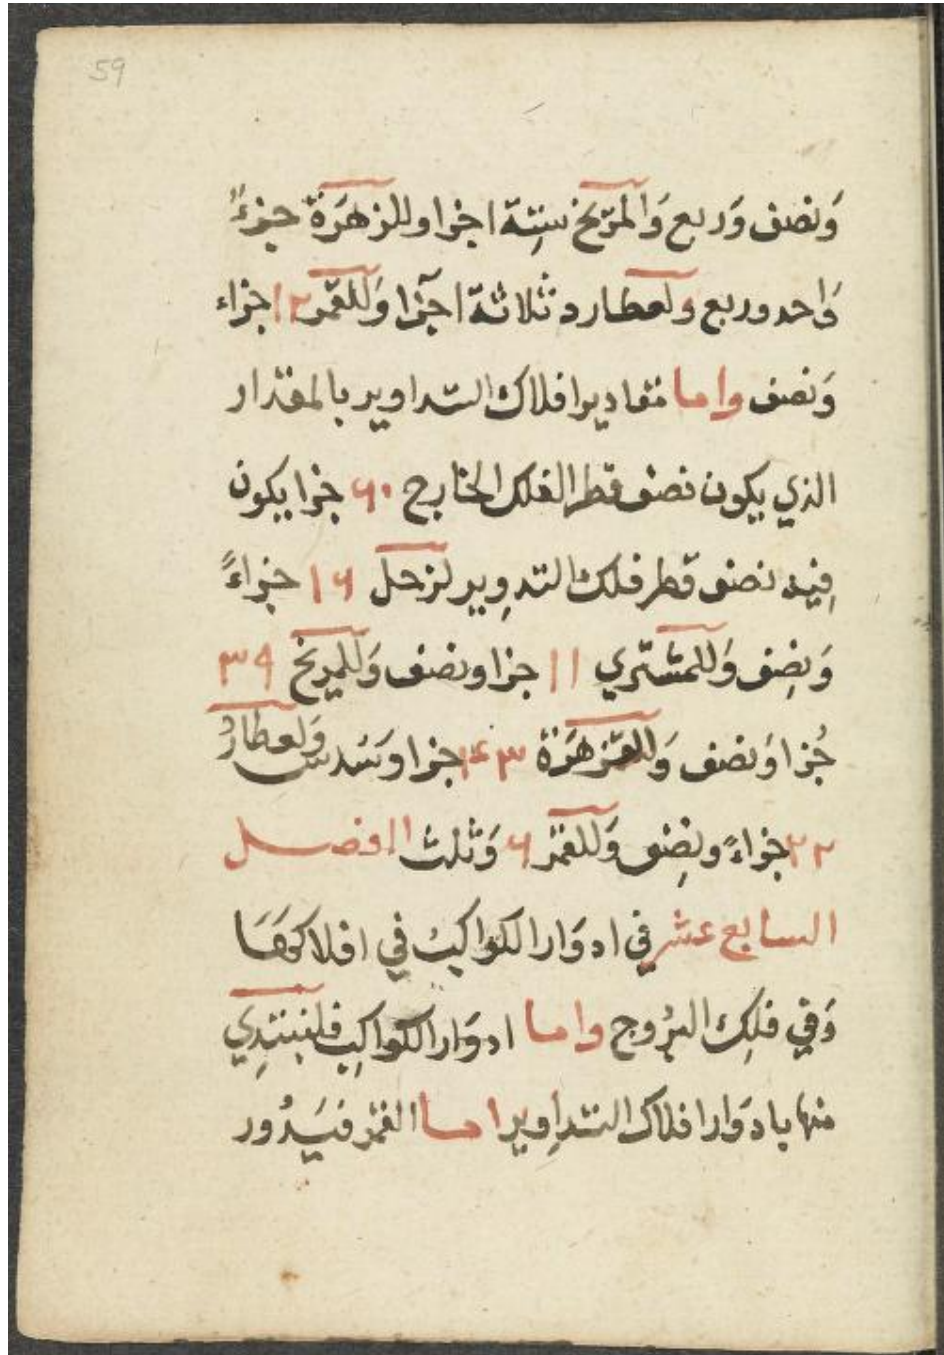 59
وَنصف وَربع وَالمرّيخ ستِة اجزا وللزهَرَة جزءً
وَاحد وربع ولعطارد ثلاثة اجزا وَللقمَر ١٢ جزاء
وَنصف واما مقادير افلاك التداوير بالمقدار
الذي يكون نصف قطر الفلك الخارج ٦٠ جزا يكون
فِيه نصف قطر فلك التدوِير لزحل ٦ ١ جزاءً
وَنصِف وَللمشتري ١١ جزا ونصف وَللمريخ ٣٩
جُزا وَنصف وَللزهَرَة ٤٣ جزا وَسَدس وَلعطارد
٢٢ جزاءً ونصِف وَللقمَر ٦ وَثلث الفصل
السابع عشر في ادوَار الكواكب في افلاكهَا
وَفي فلكِ البرُوج واما ادوَار الكواكِب فلنبتدِي
منها بادوَار افلاك التداوِير اما القمر فيَدُور